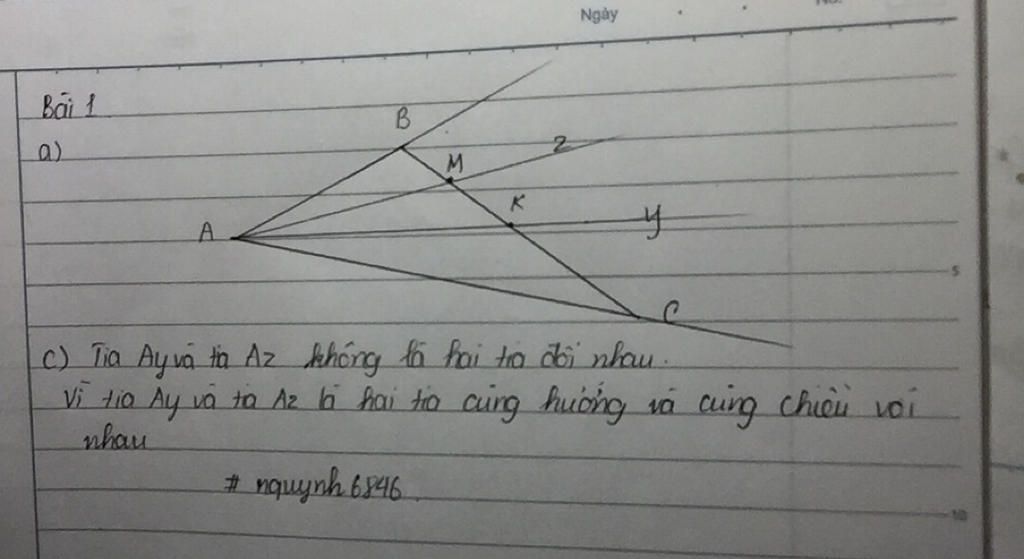 Ngày
No.
Bài 1
a)
B
z
M
K
A
y
5
C
c) Tia Ay và tia Az không là hai tia đối nhau.
Vì tia Ay và tia Az là hai tia cùng hướng và cùng chiều với
nhau
# nquynh6846.
10